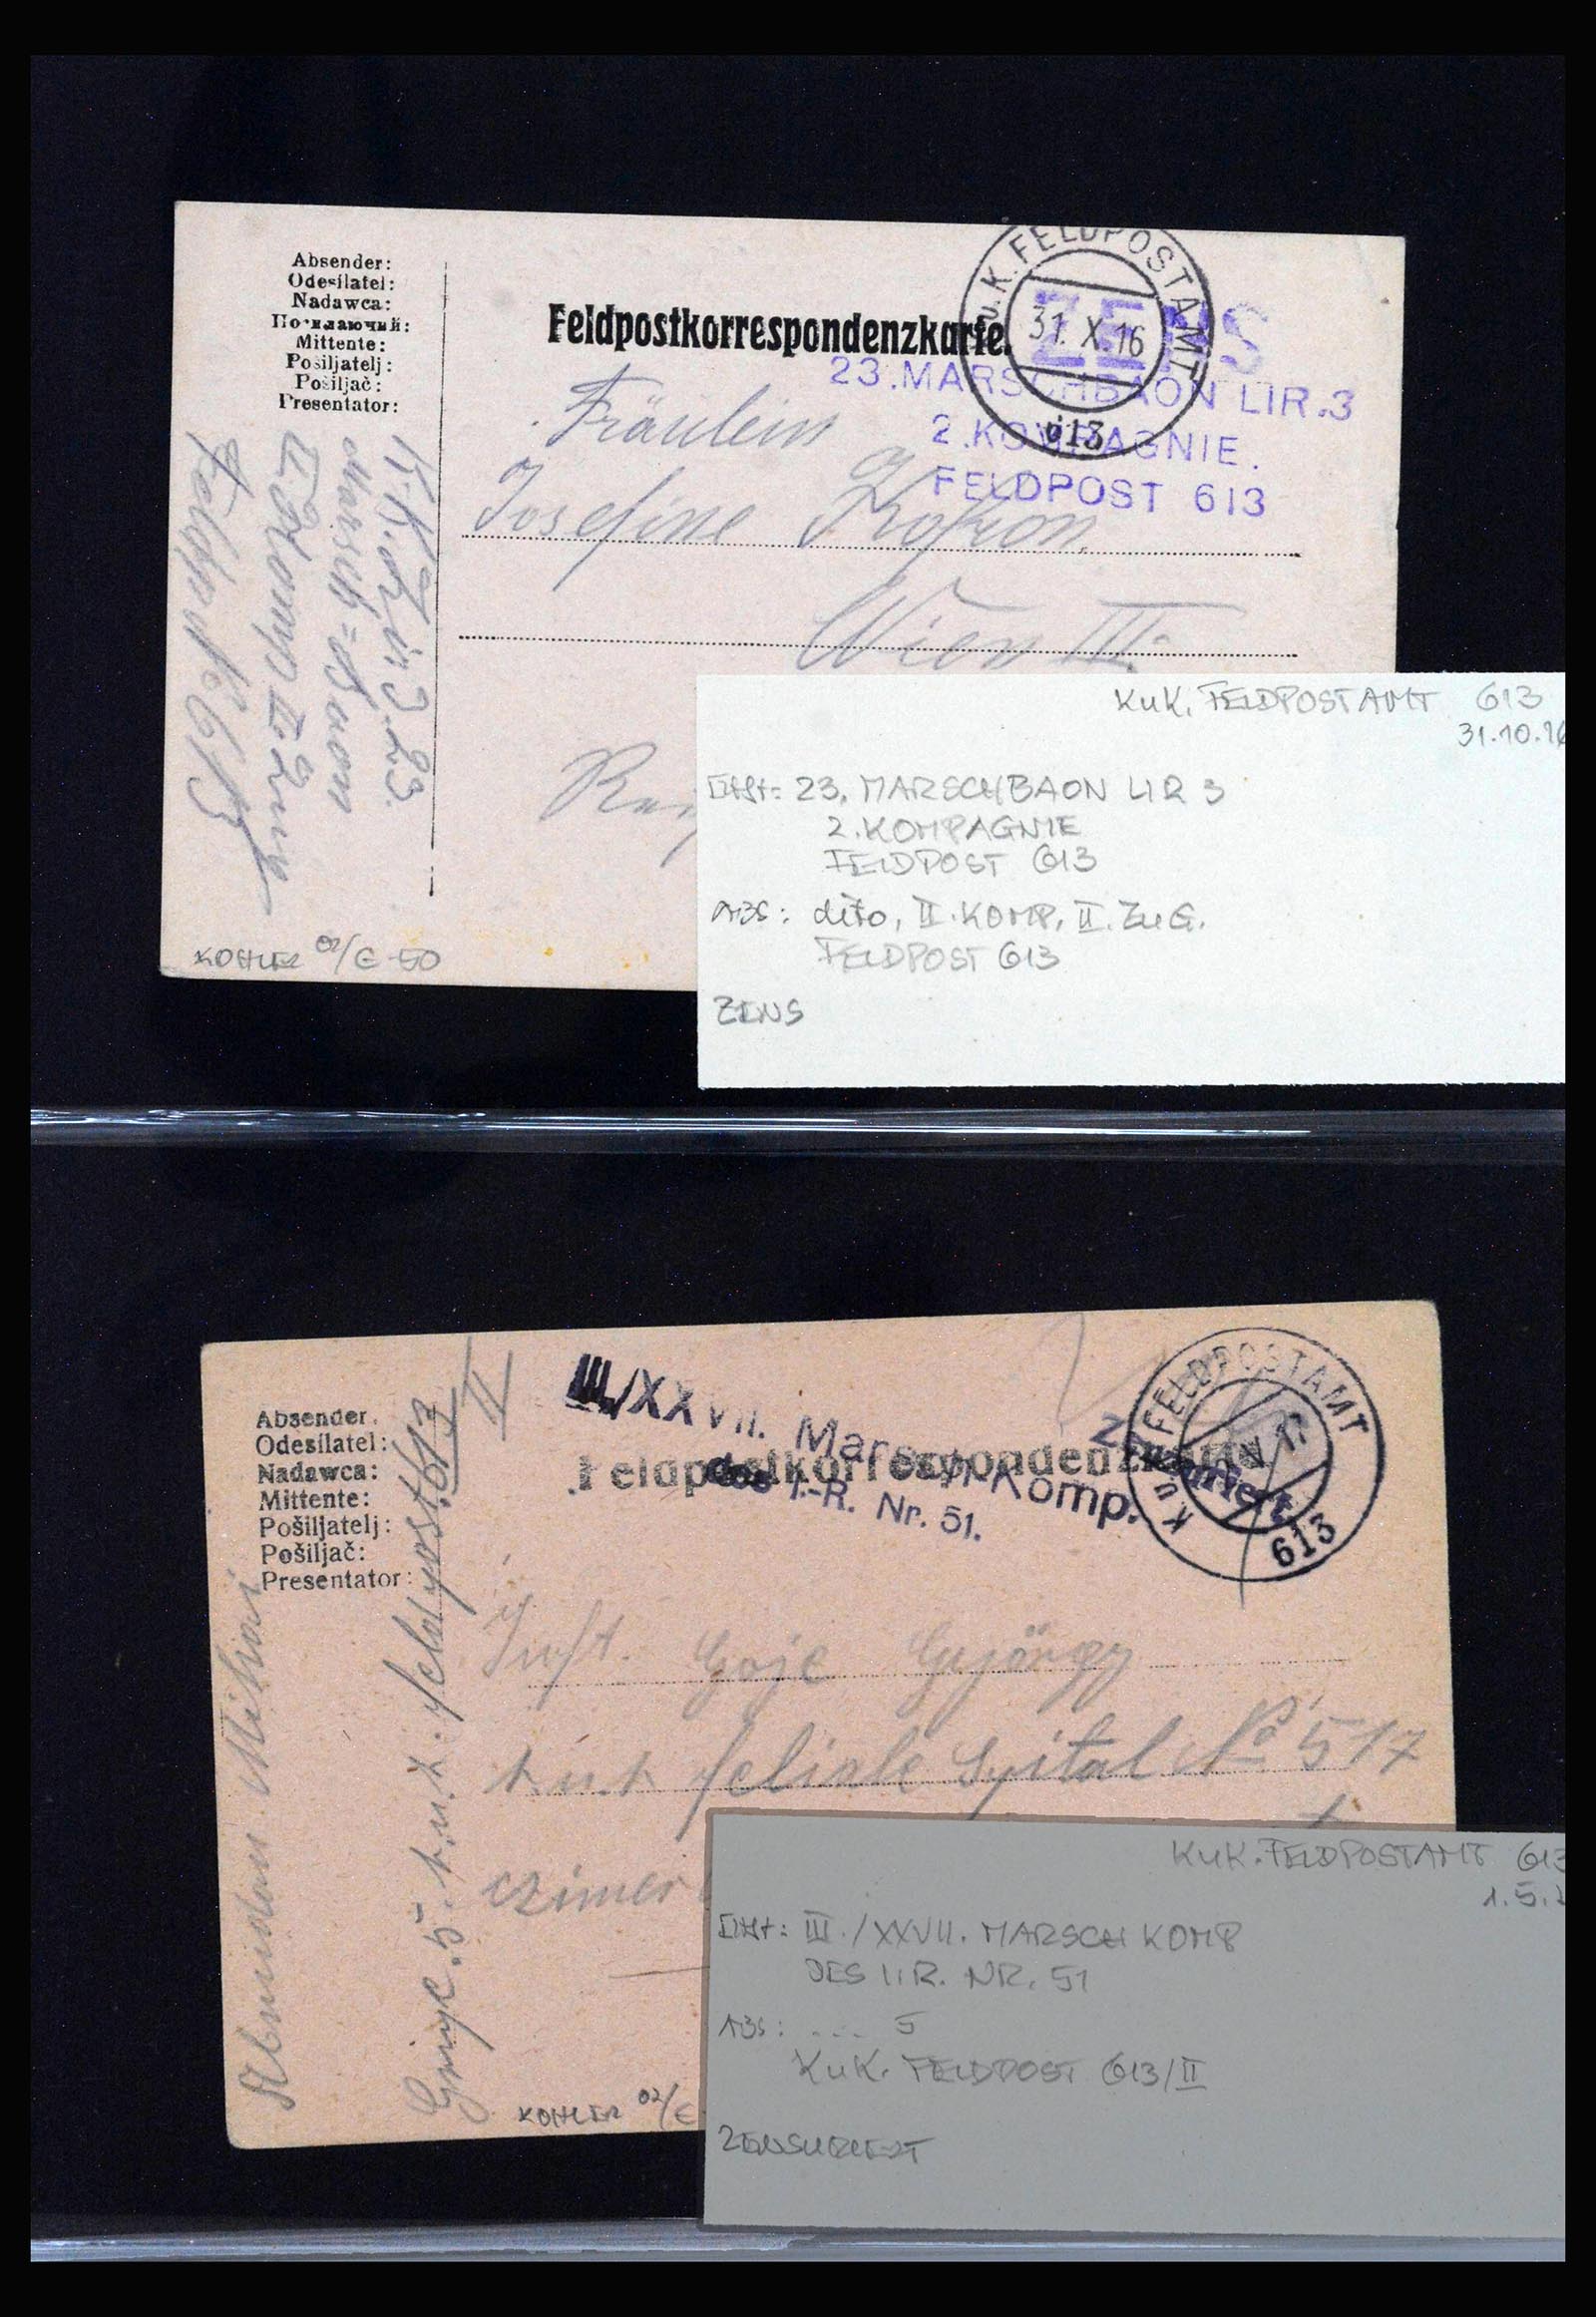 Absender:
Odesílatel:
Nadawca:
Посилаючий:
Mittente:
Pošiljatelj:
Pošiljač:
Presentator:
Feldpostkorrespondenzkarte.
K.u.K. FELDPOSTAMT
31. X. 16
613
ZENS
23.MARSCHBAON LIR.3
2.KOMPAGNIE.
FELDPOST 613
Fräulein
Josefine
Wien III.
23.
Marsch=Baon
II. Komp II. Zug
Feldpost 613
KOHLER 02/€ 50
KuK. FELDPOSTAMT 613
31.10.16
23. MARSCHBAON LIR 3
2. KOMPAGNIE
FELDPOST 613
ABS: dito, II. KOMP, II. ZUG.
FELDPOST 613
ZENS
Absender.
Odesílatel:
Nadawca:
Mittente:
Pošiljatelj:
Pošiljač:
Presentator:
III./XXVII. Marsch-Komp.
des I.-R. Nr. 51.
Feldpostkorrespondenzkarte
Zensuriert.
K.u.K. FELDPOSTAMT
613
II
Mihai
5. k.u.k. feldpost 613
Inft. Goje György
k.u.k Spital No 517
KOHLER 02/€
KuK. FELDPOSTAMT 613
1.5.1
III./XXVII. MARSCH KOMP
DES I.R. NR. 51
ABS: .... 5
KuK. FELDPOST 613/II
ZENSURIERT